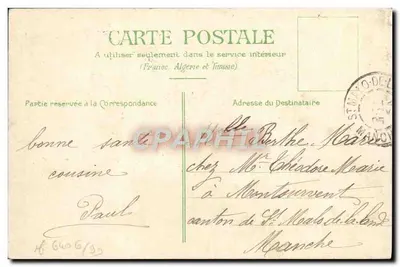 CARTE POSTALE
A utiliser seulement dans le service intérieur
(France, Algérie et Tunisie)
Partie réservée à la Correspondance
Adresse du Destinataire
bonne santé
cousine
Paul
Mlle Berthe Marie
chez Mr Théodore Marie
à Montsurvent
canton de St Malo de la Land
Manche
ST MALO-DE-L
MANCH
PRIVATE